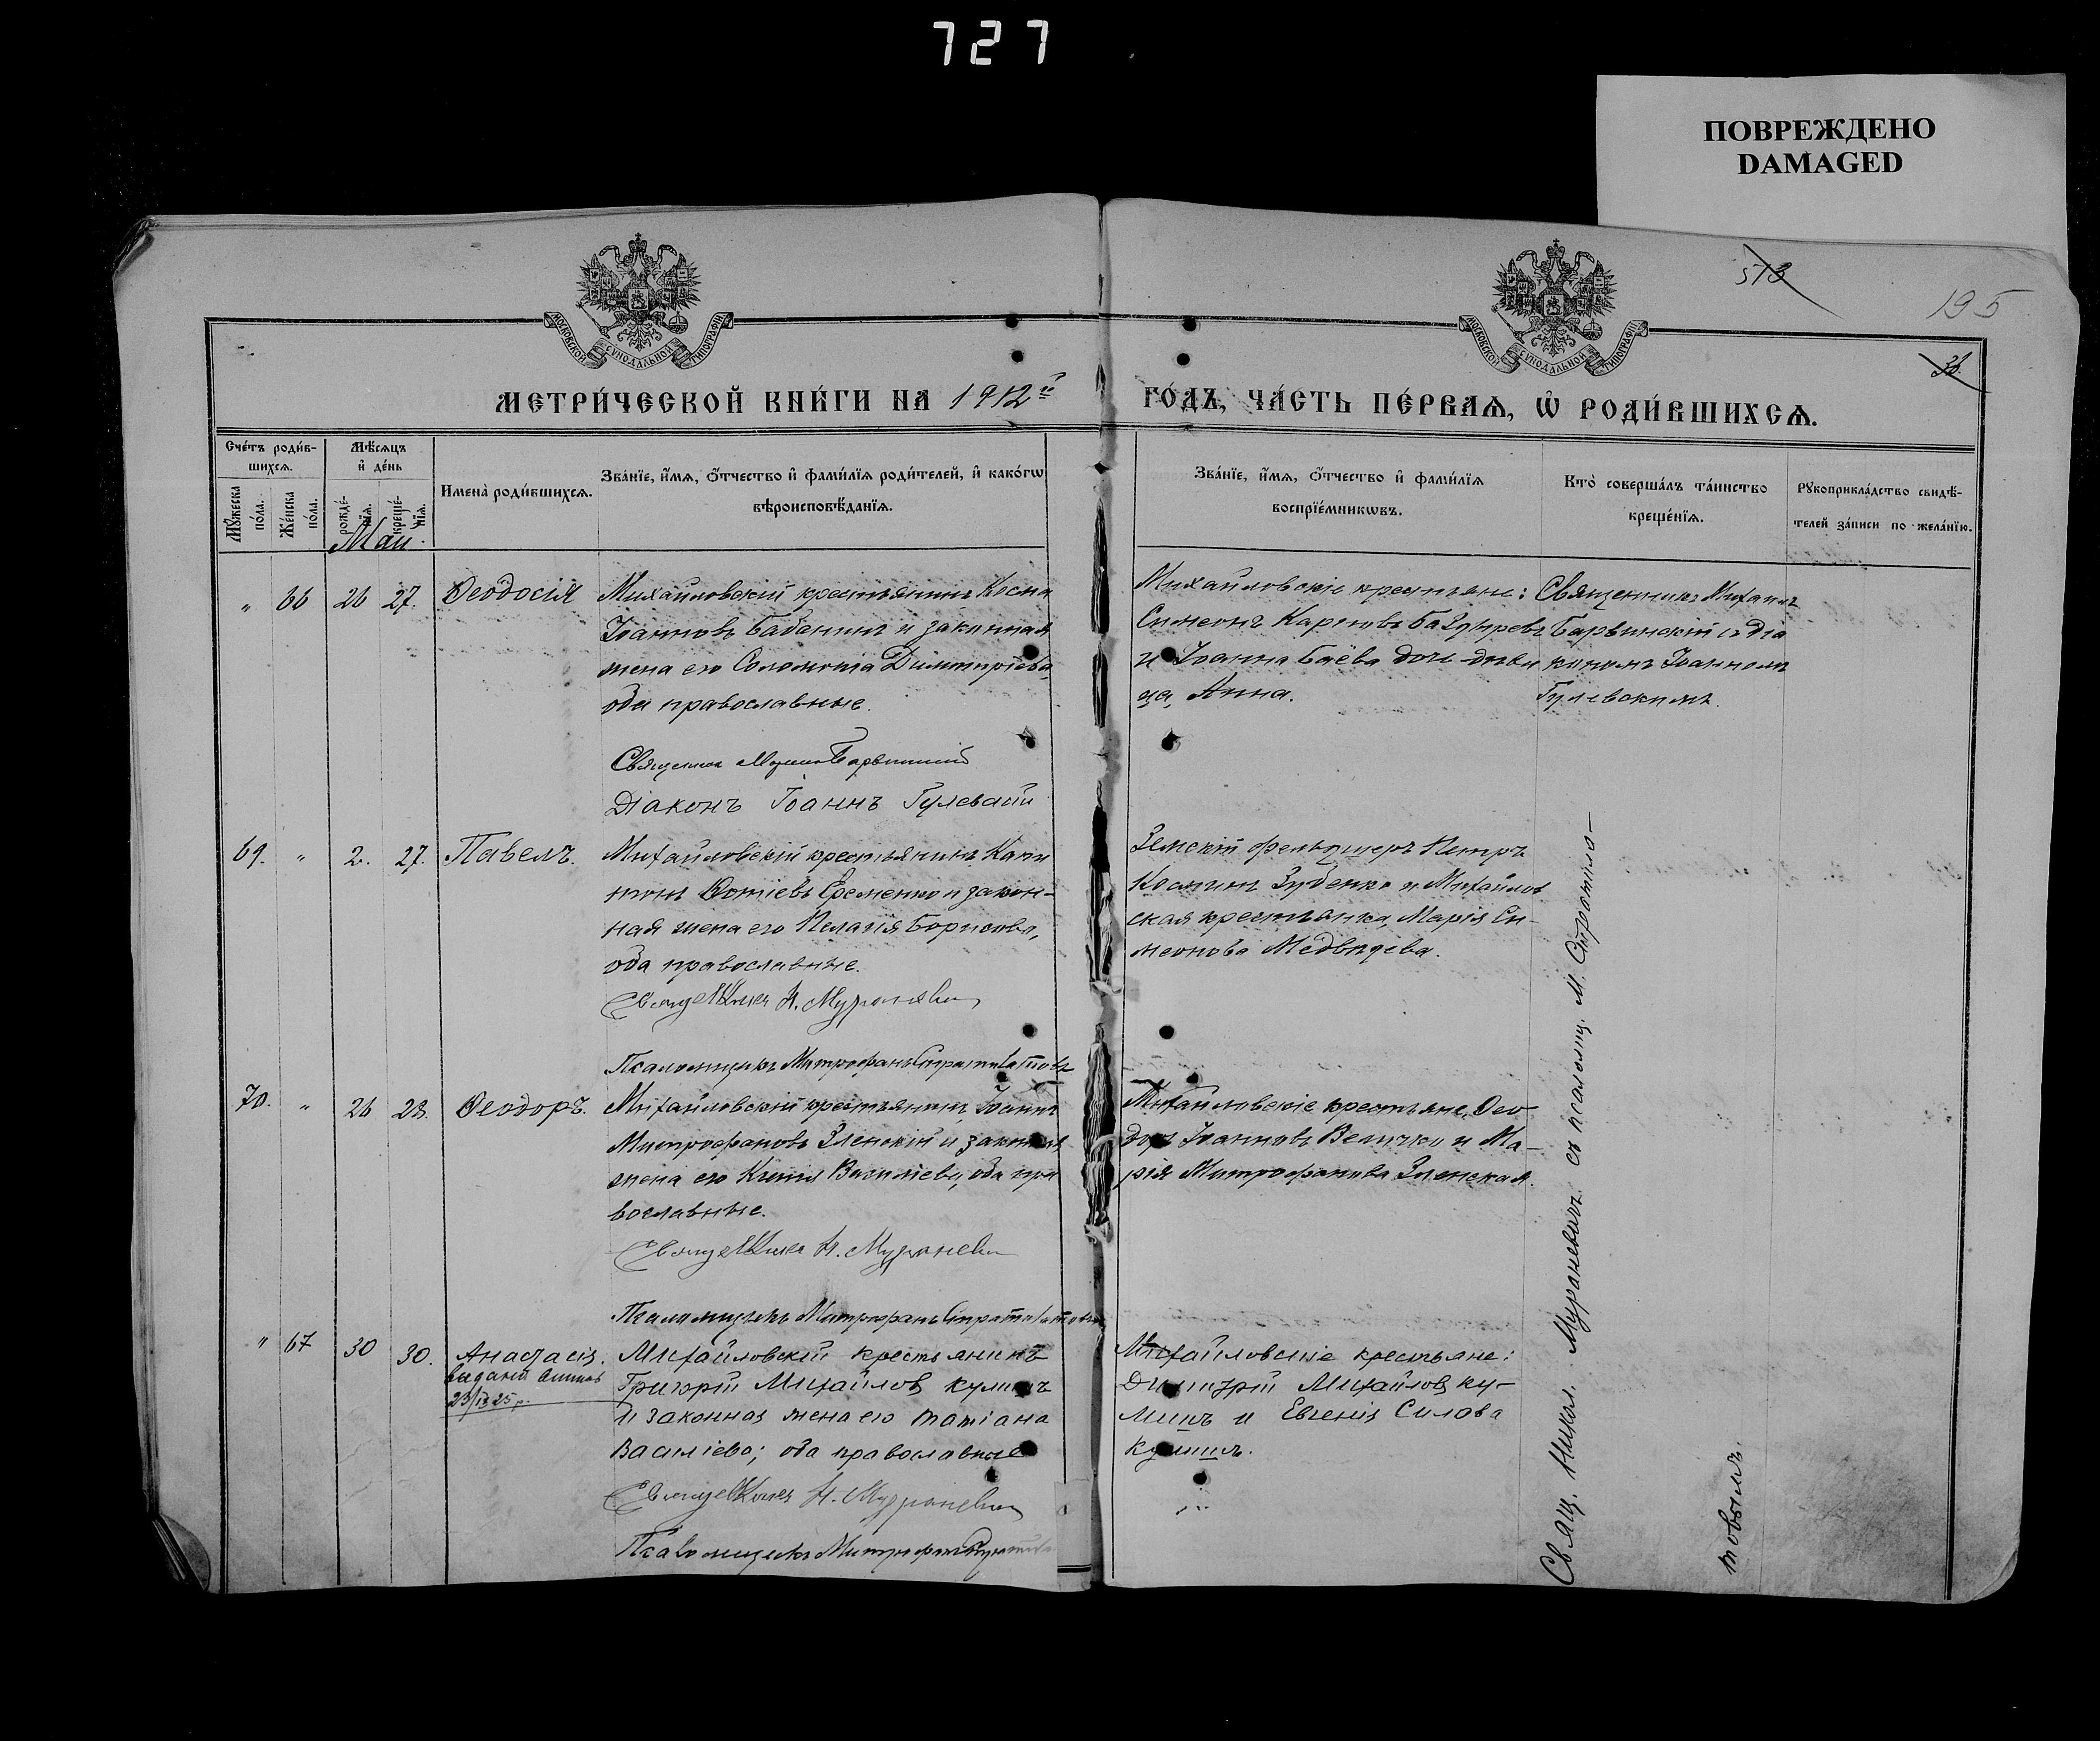 727
ПОВРЕЖДЕНО
DAMAGED
513
195
38
МОСКОВСКОЙ СУНОДАЛЬНОЙ ТИПОГРАФІИ
МОСКОВСКОЙ СУНОДАЛЬНОЙ ТИПОГРАФІИ
МЕТРИ́ЧЕСКОЙ КНИ́ГИ НА 1912й
ГО́ДЪ, ЧА́СТЬ ПЕ́РВАѦ, Ѡ РОДИ́ВШИХСѦ.
Сче́тъ роди́в-
шихсѧ.
Мꙋ́жеска по́ла.
Же́нска по́ла.
Мѣ́сѧцъ
и де́нь
рожде́-нїѧ.
креще́-нїѧ.
Имена̀ роди́вшихсѧ.
Зва́нїе, и́мѧ, ѻ҆́тчество и фами́лїѧ роди́телей, и како́гѡ
вѣроисповѣ́данїѧ.
Зва́нїе, и́мѧ, ѻ҆́тчество и фами́лїѧ
воспрїе́мникѡвъ.
Кто̀ соверша́лъ та́инство
креще́нїѧ.
Рꙋкоприкла́дство свидѣ́-
телей за́писи по жела́нїю.
Май.
" 66 26 27. Ѳеодосія
Михайловскій крестьянинъ Косма
Іоанновъ Бабанинъ и законная
жена его Соломонія Димитріева,
оба православные.
Священникъ Михаилъ Барвинскій
Діаконъ Іоаннъ Гулевскій
Михайловскіе крестьяне:
Симеонъ Карповъ
и Іоанна Баёва дочь дѣви
ца, Анна.
Священникъ Михаилъ
Барвинскій съ діа
кономъ Іоанномъ
Гулевскимъ.
69. " 2. 27. Павелъ.
Михайловскій крестьянинъ Капи
тонъ Фотіевъ Еременко и закон-
ная жена его Пелагія Борисова,
оба православные.
Священникъ Н. Мураневичъ
Псаломщикъ Митрофанъ Стратилатовъ
Земскій фельдшеръ Петръ
Космин Зубенко и Михайлов
ская крестьянка, Марія Си-
меонова Медвѣдева.
70. " 26 28. Ѳеодоръ.
Михайловскій крестьянинъ, Іоаннъ
Митрофановъ Зленскій и законная
жена его Ксенія Васильева, оба пра
вославные.
Священникъ Н. Мураневичъ
Псаломщикъ Митрофанъ Стратилатовъ
Михайловскіе крестьяне, Ѳео
доръ Іоанновъ Величко и Ма-
рія Митрофанова Зленская.
" 67 30 30. Анастасія.
виданій
23/IX 25 р.
Михайловскій крестьянинъ
Григорій Михайлов Кулишъ
и законная жена его Татіана
Василіева; оба православные
Священникъ Н. Мураневичъ
Псаломщикъ Митрофанъ Стратила
Михайловскіе крестьяне:
Димитрій Михайлов Ку-
лишъ и Евгенія Силова
Кулишъ.
Свящ. Никол. Мураневичъ съ псаломщ. М. Стратила-
товымъ.